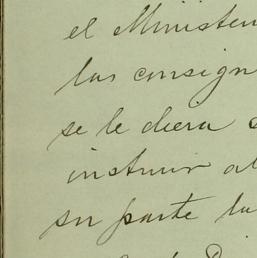 el Minister
las consign
se le diera
instruir al
su parte la